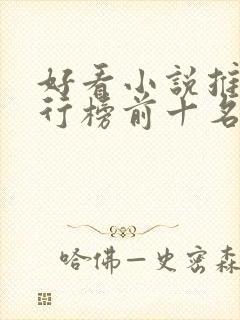 好看小說推
行榜前十名
哈佛—史密森